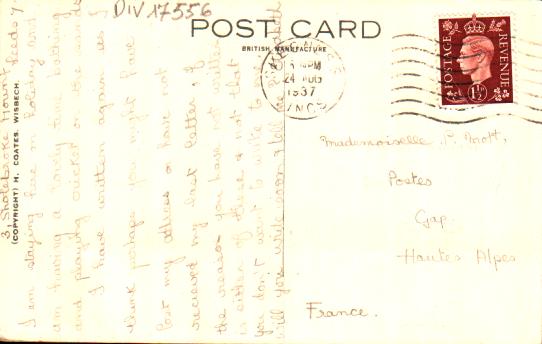 DIV 17556
POST CARD
BRITISH MANUFACTURE
(COPYRIGHT) H. COATES. WISBECH.
3, Sholebroke Mount
Leeds 7
I am staying here on holiday and
am having a lovely time
and playing cricket on the sands
I have written again as I
think perhaps you might have
lost my address or have not
recieved my last letter. If
the reason you have not
is either of these or not that
you don't want to write to
will you write soon
24 AUG
1937
POSTAGE
REVENUE
1½D
Mademoiselle P. Mott,
Postes
Gap
Hautes Alpes
France.